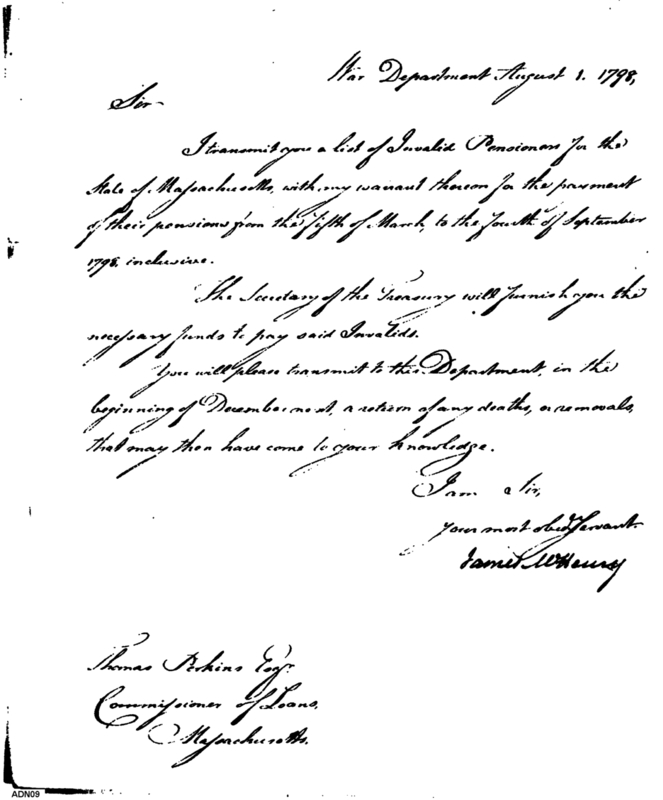 War Department August 1. 1798,
Sir
I transmit you a list of Invalid Pensioners for the
State of Massachusetts, with my warrant thereon for the payment
of their pensions from the fifth of March, to the fourth of September
1798, inclusive.
The Secretary of the Treasury will furnish you the
necessary funds to pay said Invalids.
You will please transmit to this Department, in the
beginning of December next, a return of any deaths, or removals,
that may then have come to your knowledge.
I am Sir,
your most obed Servant
James McHenry
Thomas Perkins Esqr.
Commissioner of Loans,
Massachusetts.
ADN09